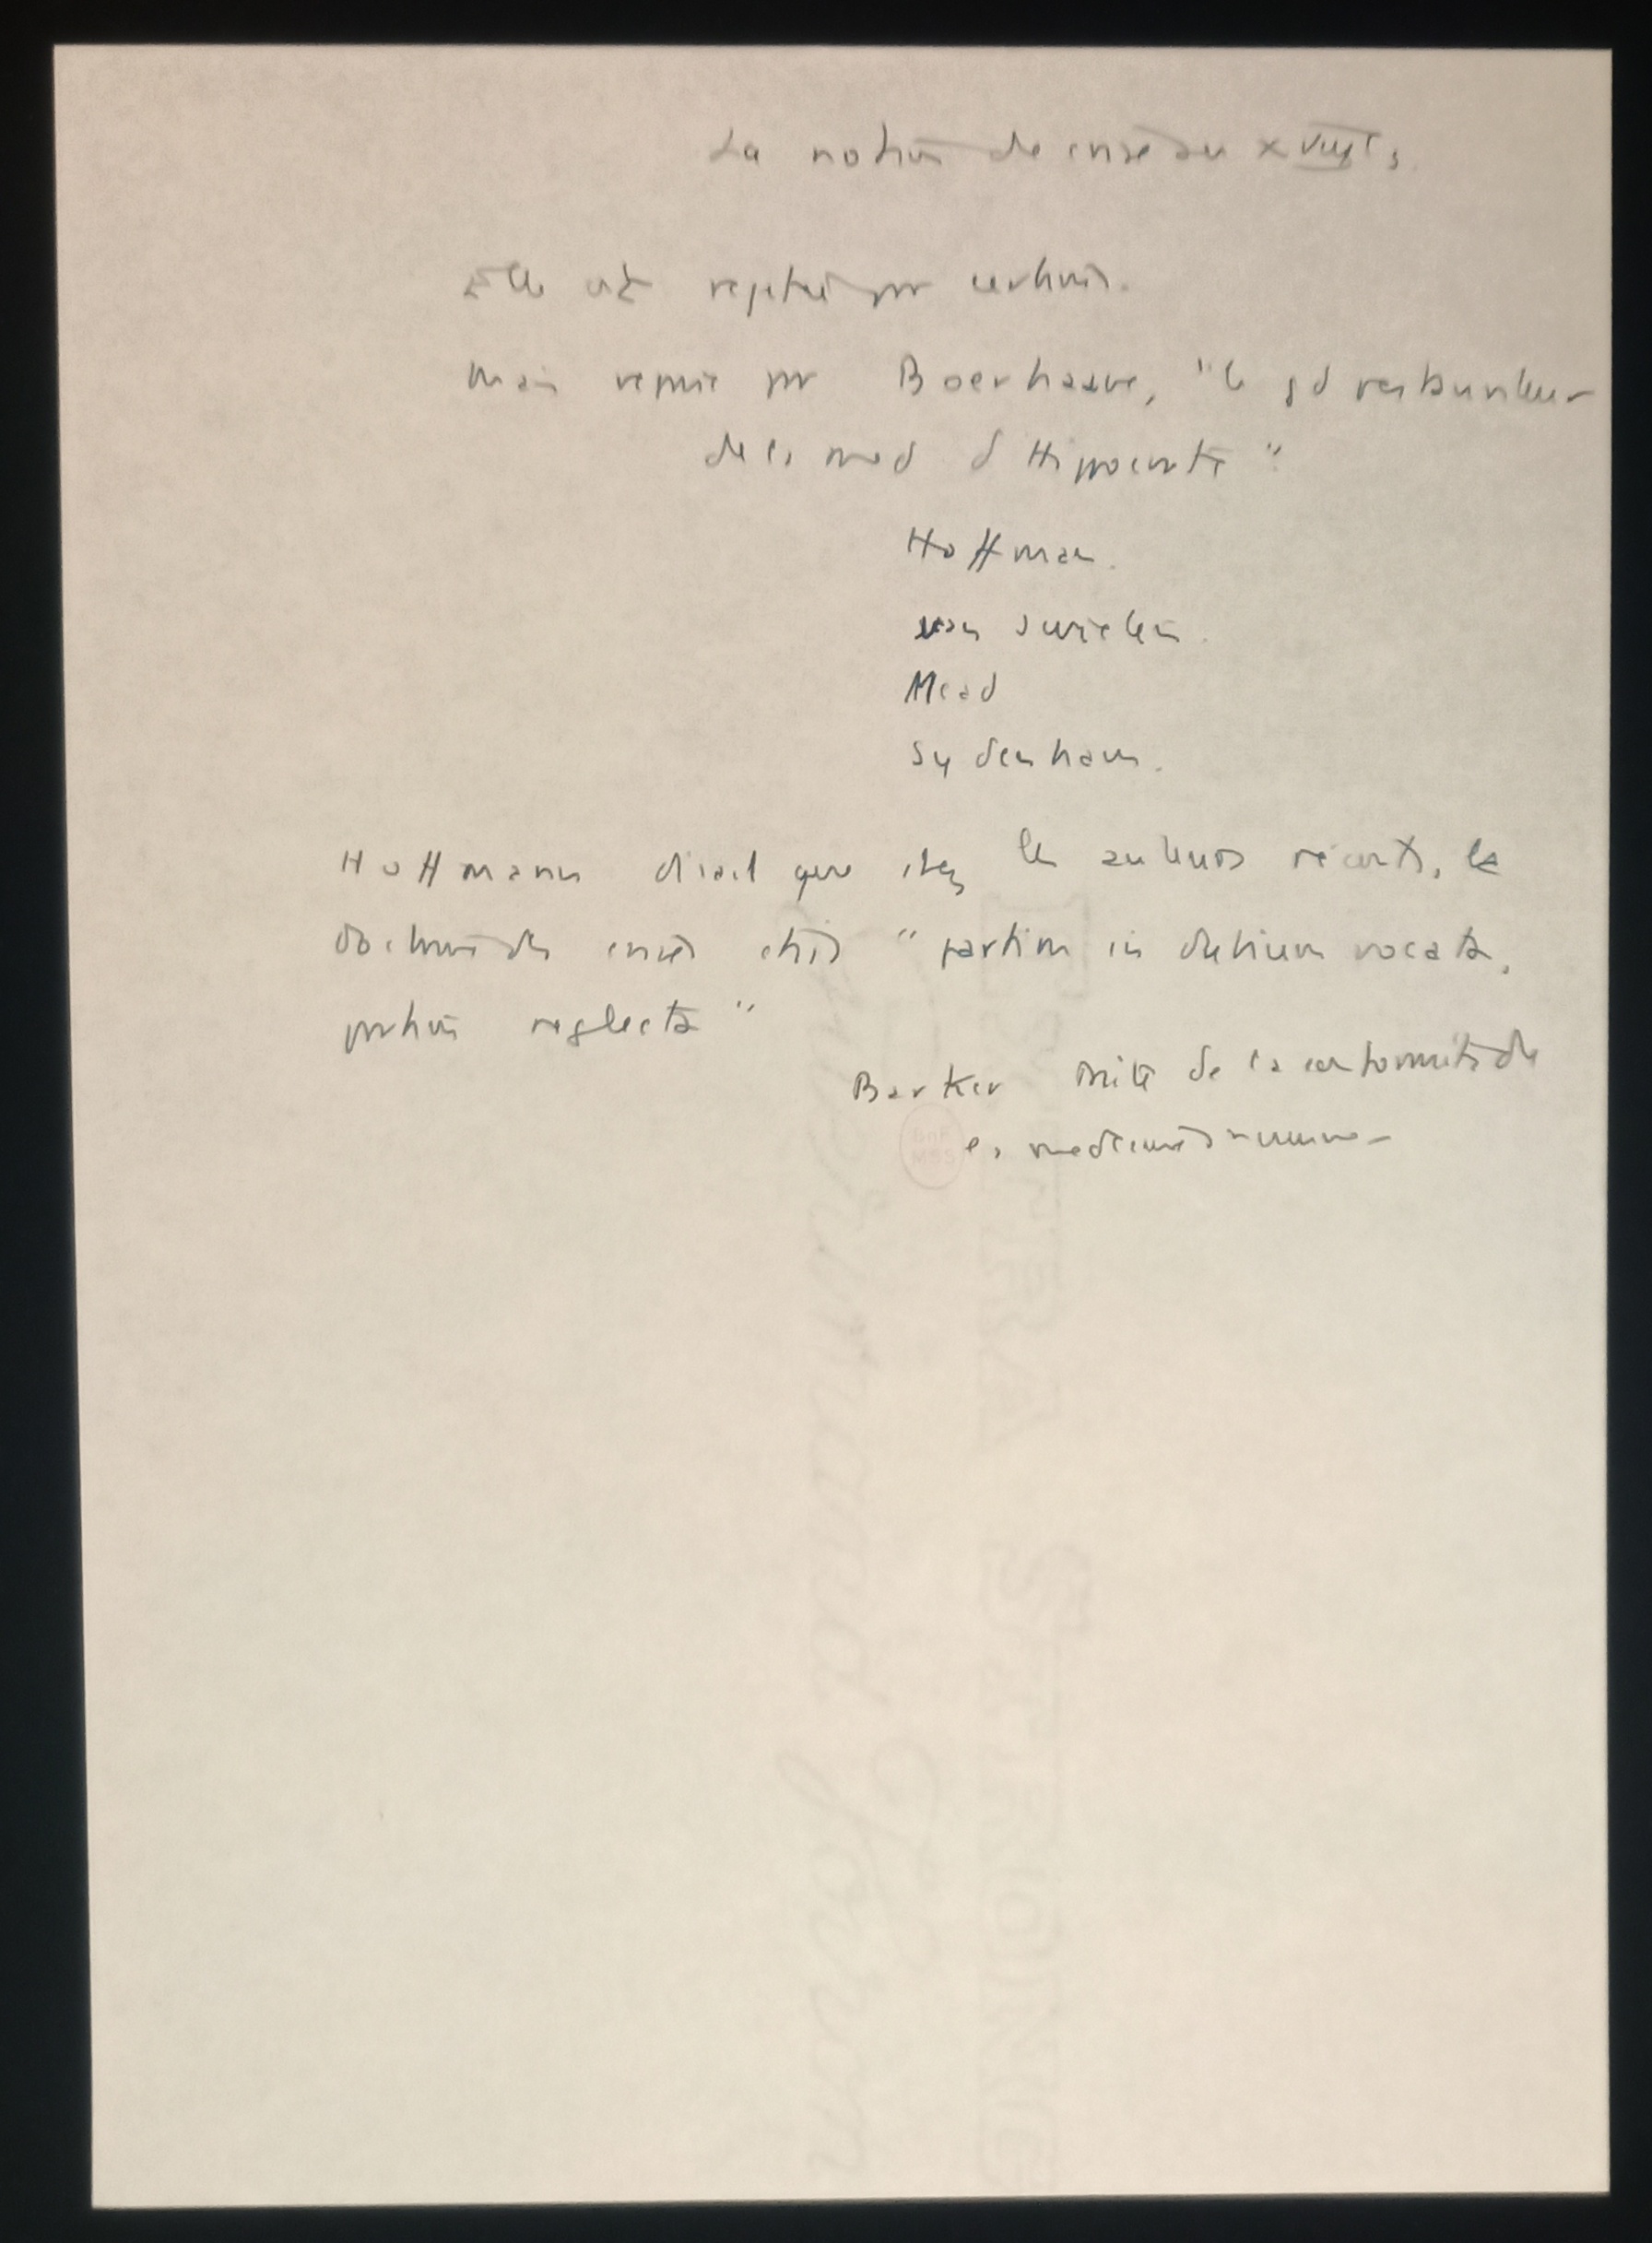 La notion de crise au XVIIIe s.
Elle est rejetée par certains.
Mais reprise par Boerhaave, "le gd restaurateur
de la med d'Hippocrate"
Hoffman.
van Swieten.
Mead
Sydenham.
Hoffmann disait que chez les auteurs récents, la
doctrine des crises était "partim in dubium vocata,
partim neglecta"
Barker Traité de la conformité de
la médecine
BnF
MSS